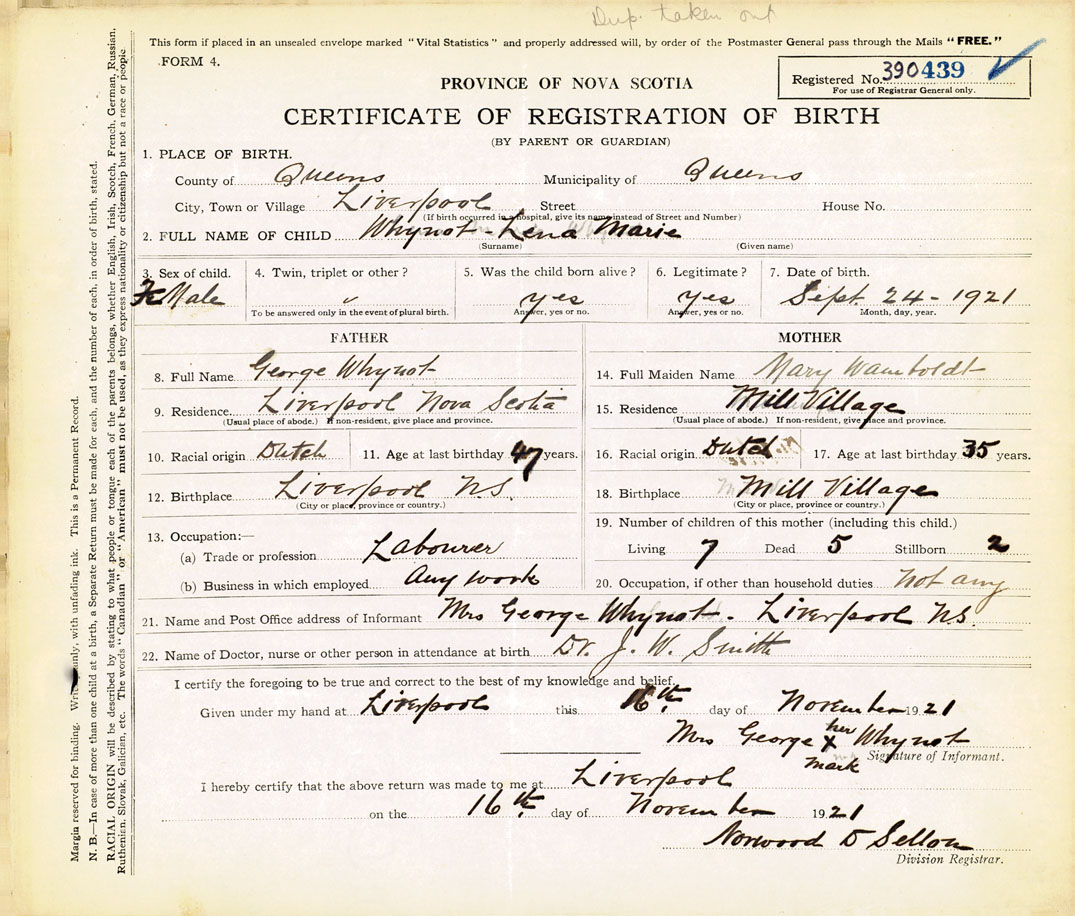 Dup. taken out
This form if placed in an unsealed envelope marked "Vital Statistics" and properly addressed will, by order of the Postmaster General pass through the Mails "FREE."
FORM 4.
Registered No. 390439
For use of Registrar General only.
PROVINCE OF NOVA SCOTIA
CERTIFICATE OF REGISTRATION OF BIRTH
(BY PARENT OR GUARDIAN)
1. PLACE OF BIRTH.
County of Queens Municipality of Queens
City, Town or Village Liverpool Street House No.
(If birth occurred in a hospital, give its name instead of Street and Number)
2. FULL NAME OF CHILD Whynot - Lena Marie
(Surname) (Given name)
3. Sex of child. 4. Twin, triplet or other? 5. Was the child born alive? 6. Legitimate? 7. Date of birth.
FeMale " yes yes Sept. 24 - 1921
To be answered only in the event of plural birth. Answer, yes or no. Answer, yes or no. Month, day, year.
FATHER
8. Full Name George Whynot
9. Residence Liverpool Nova Scotia
(Usual place of abode.) If non-resident, give place and province.
10. Racial origin Dutch 11. Age at last birthday 47 years.
12. Birthplace Liverpool N.S.
(City or place, province or country.)
13. Occupation:—
(a) Trade or profession Labourer
(b) Business in which employed Any work
MOTHER
14. Full Maiden Name Mary Wamboldt
15. Residence Mill Village
(Usual place of abode.) If non-resident, give place and province.
16. Racial origin Dutch 17. Age at last birthday 35 years.
18. Birthplace Mill Village
(City or place, province or country.)
19. Number of children of this mother (including this child.)
Living 7 Dead 5 Stillborn 2
20. Occupation, if other than household duties not any
21. Name and Post Office address of Informant Mrs George Whynot - Liverpool N.S.
22. Name of Doctor, nurse or other person in attendance at birth Dr. J. W. Smith
I certify the foregoing to be true and correct to the best of my knowledge and belief.
Given under my hand at Liverpool this 16th day of November 1921
Mrs George her X mark Whynot
Signature of Informant.
I hereby certify that the above return was made to me at Liverpool
on the 16th day of November 1921
Norwood D Sellon
Division Registrar.
Margin reserved for binding. Write only, with unfading ink. This is a Permanent Record.
N. B.—In case of more than one child at a birth, a Separate Return must be made for each, and the number of each, in order of birth, stated.
RACIAL ORIGIN will be described by stating to what people or tongue each of the parents belongs, whether English, Irish, Scotch, French, German, Russian,
Ruthenian, Slovak, Galician, etc. The words "Canadian" or "American" must not be used, as they express nationality or citizenship but not a race or people